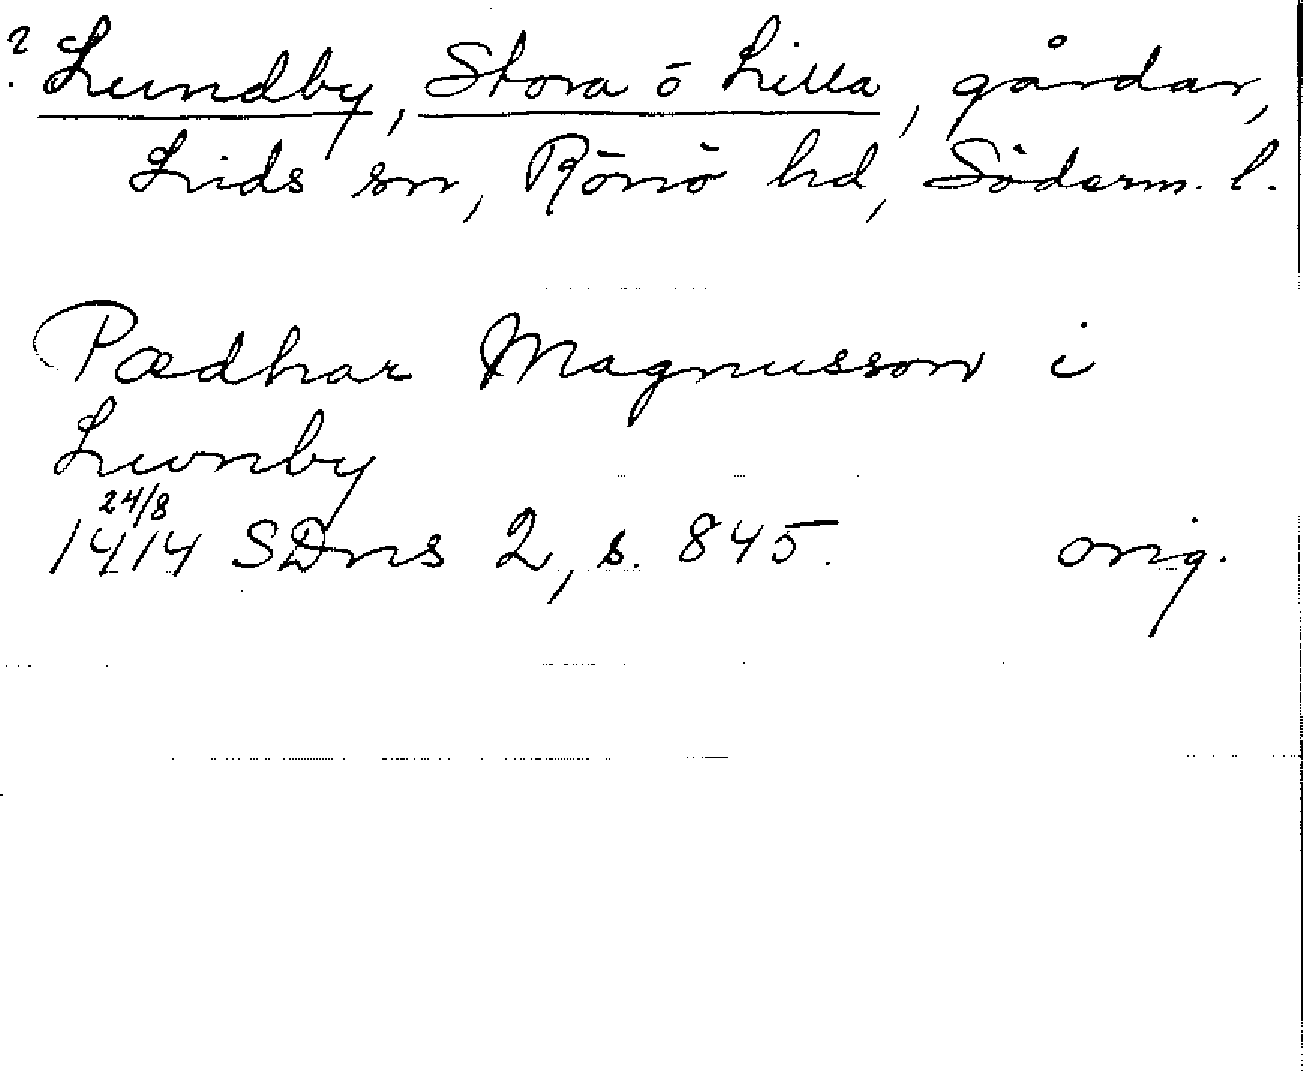 ? Lundby, Stora o Lilla, gårdar,
Lids sn, Rönö hd, Söderm. l.
Pædhar Magnusson i
Lwnby
24/8
1414 SDns 2, s. 845. orig.